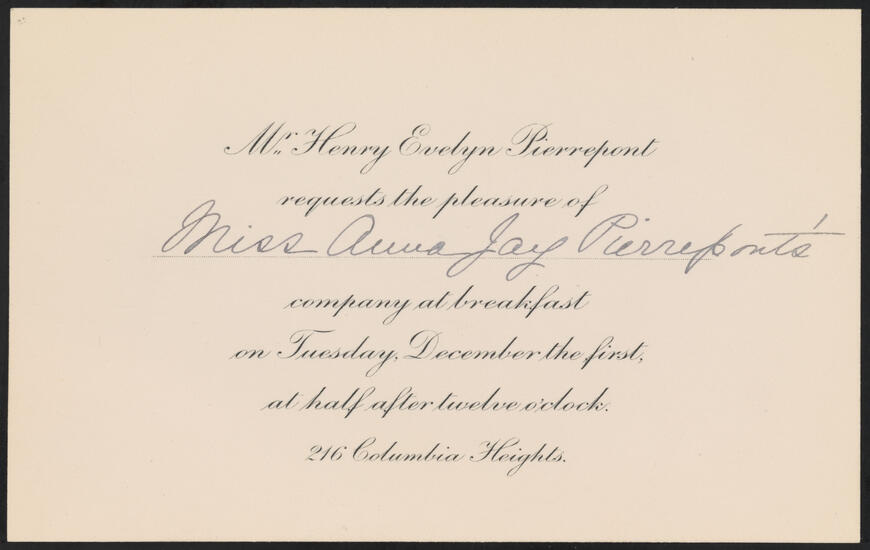 Mr. Henry Evelyn Pierrepont
requests the pleasure of
Miss Anna Jay Pierrepont's
company at breakfast
on Tuesday, December the first,
at half after twelve o'clock.
216 Columbia Heights.